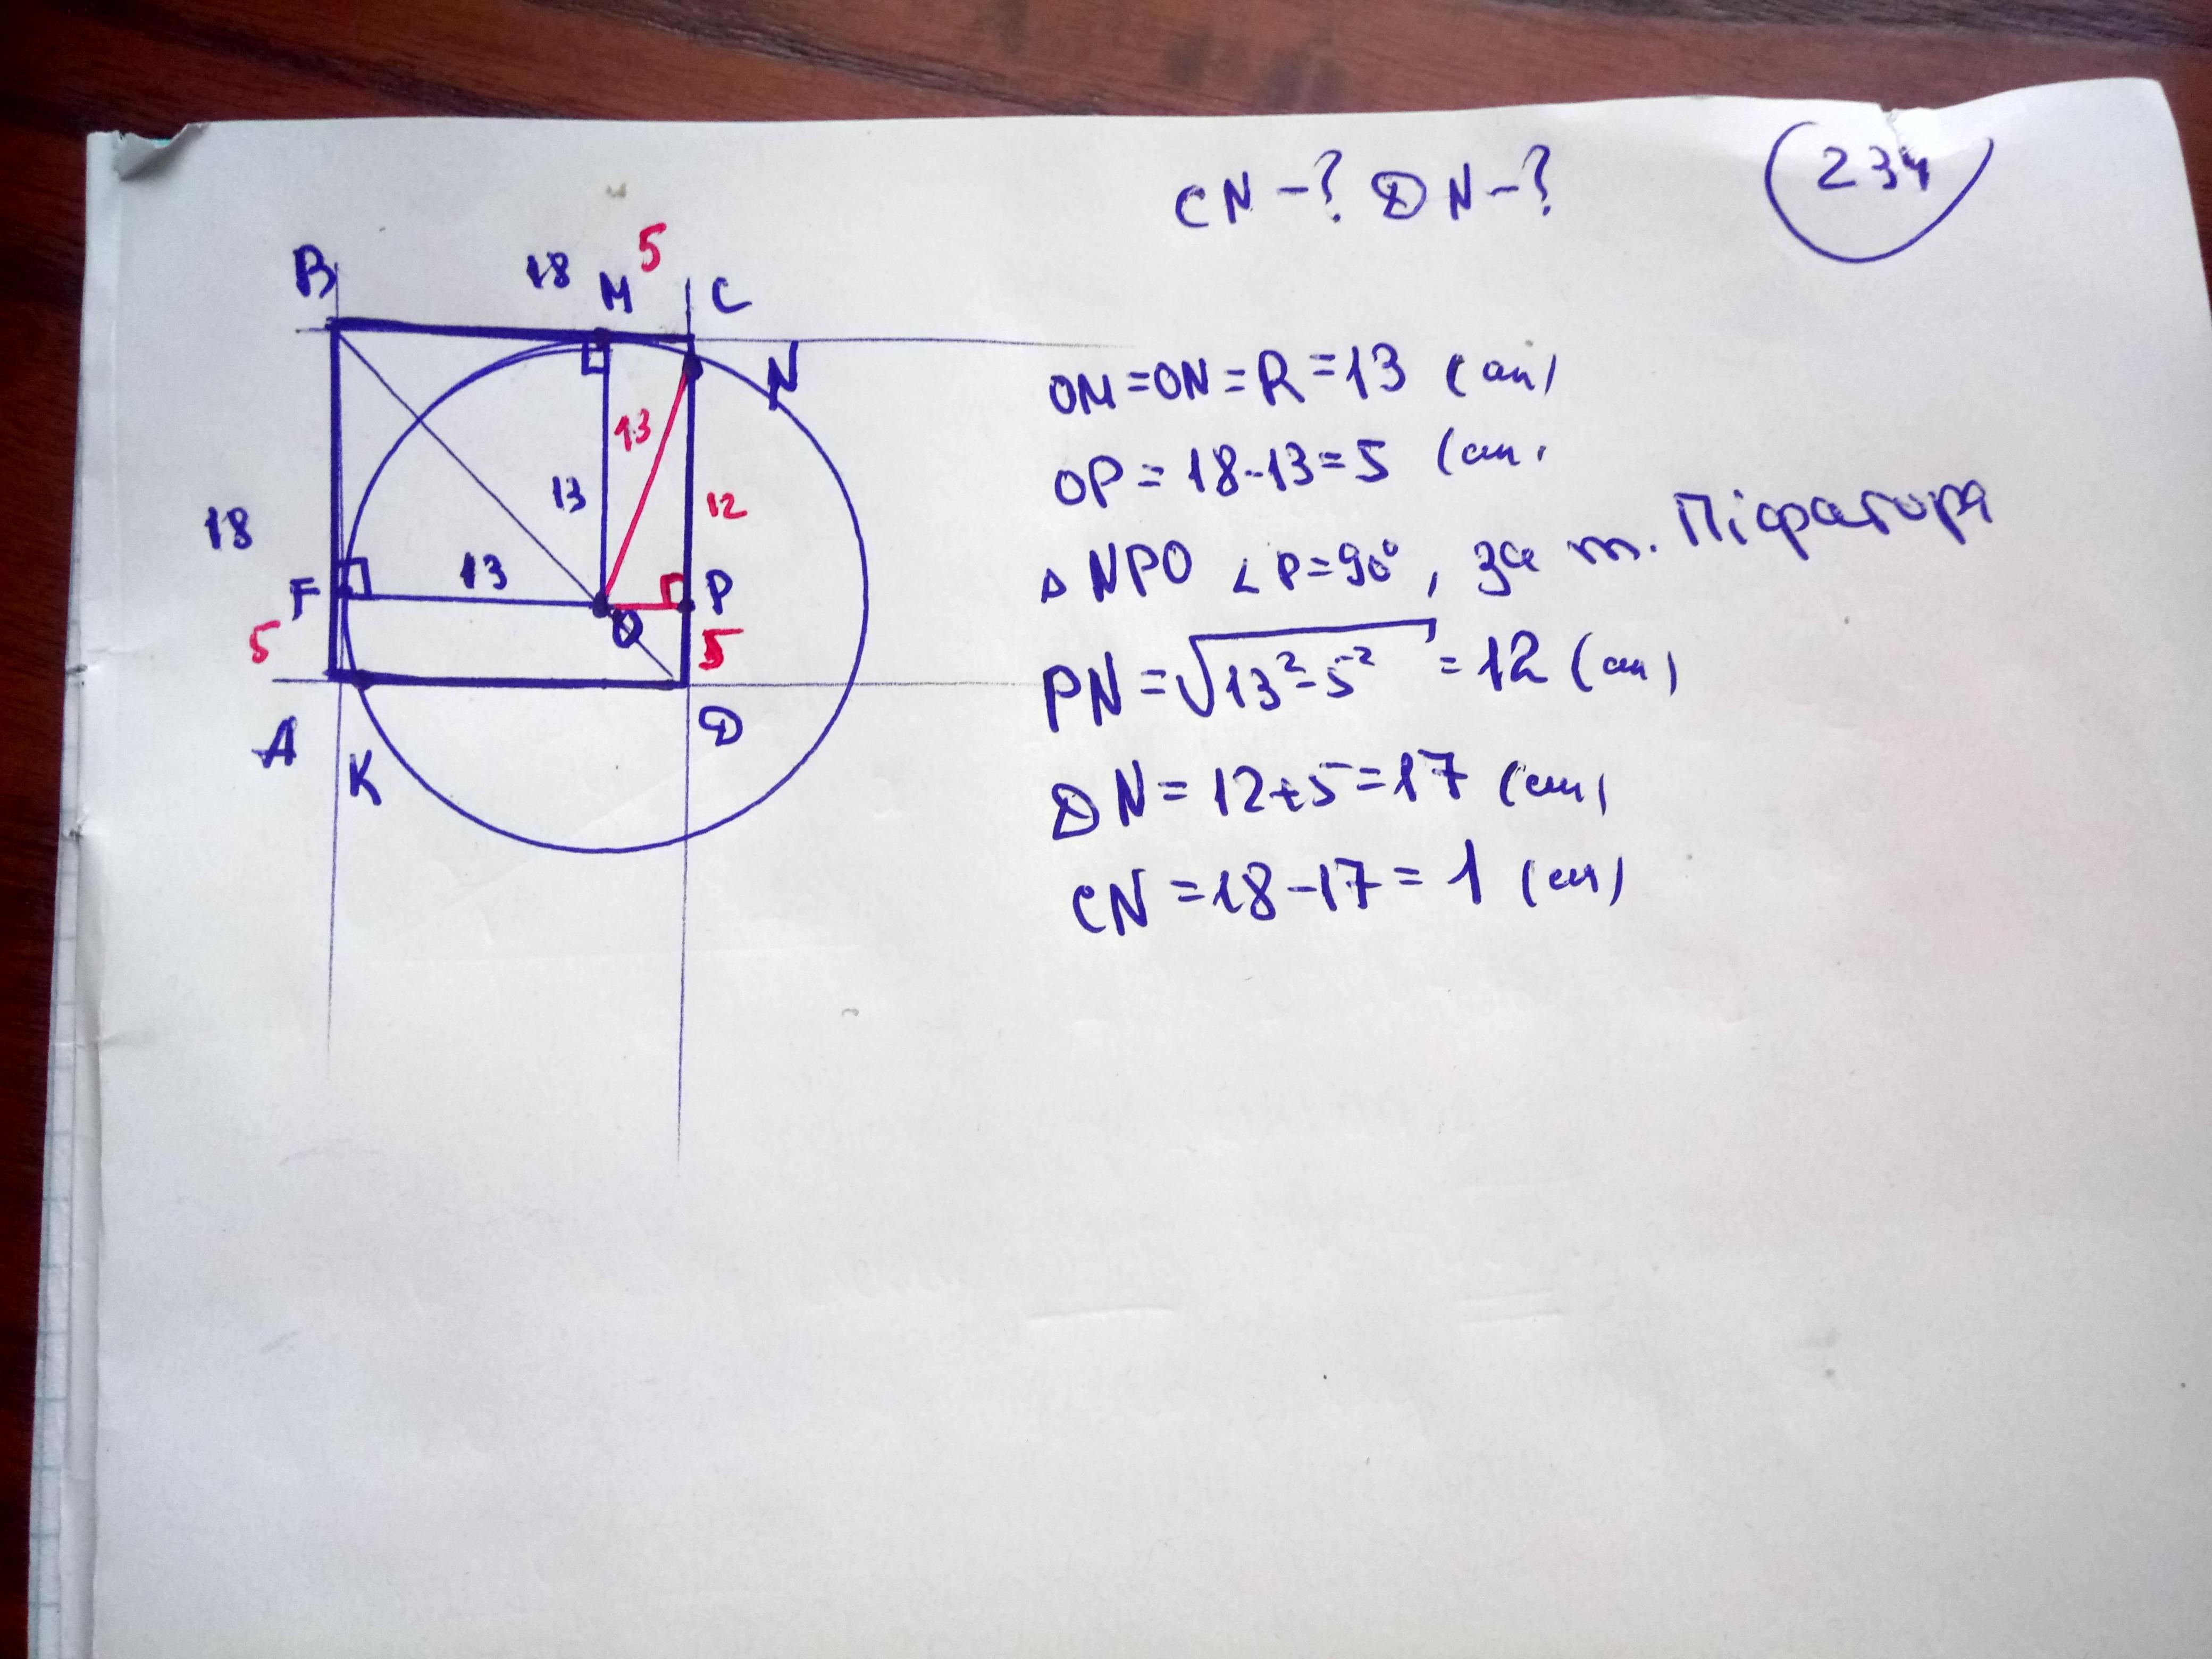 CN-? DN-?
234
B
18
M
5
C
N
13
13
12
18
F
13
O
P
5
5
A
K
D
OM=ON=R=13 (см)
OP=18-13=5 (см)
△NPO ∠P=90°, за т. Піфагора
PN=√13²-5² =12 (см)
DN=12+5=17 (см)
CN=18-17=1 (см)